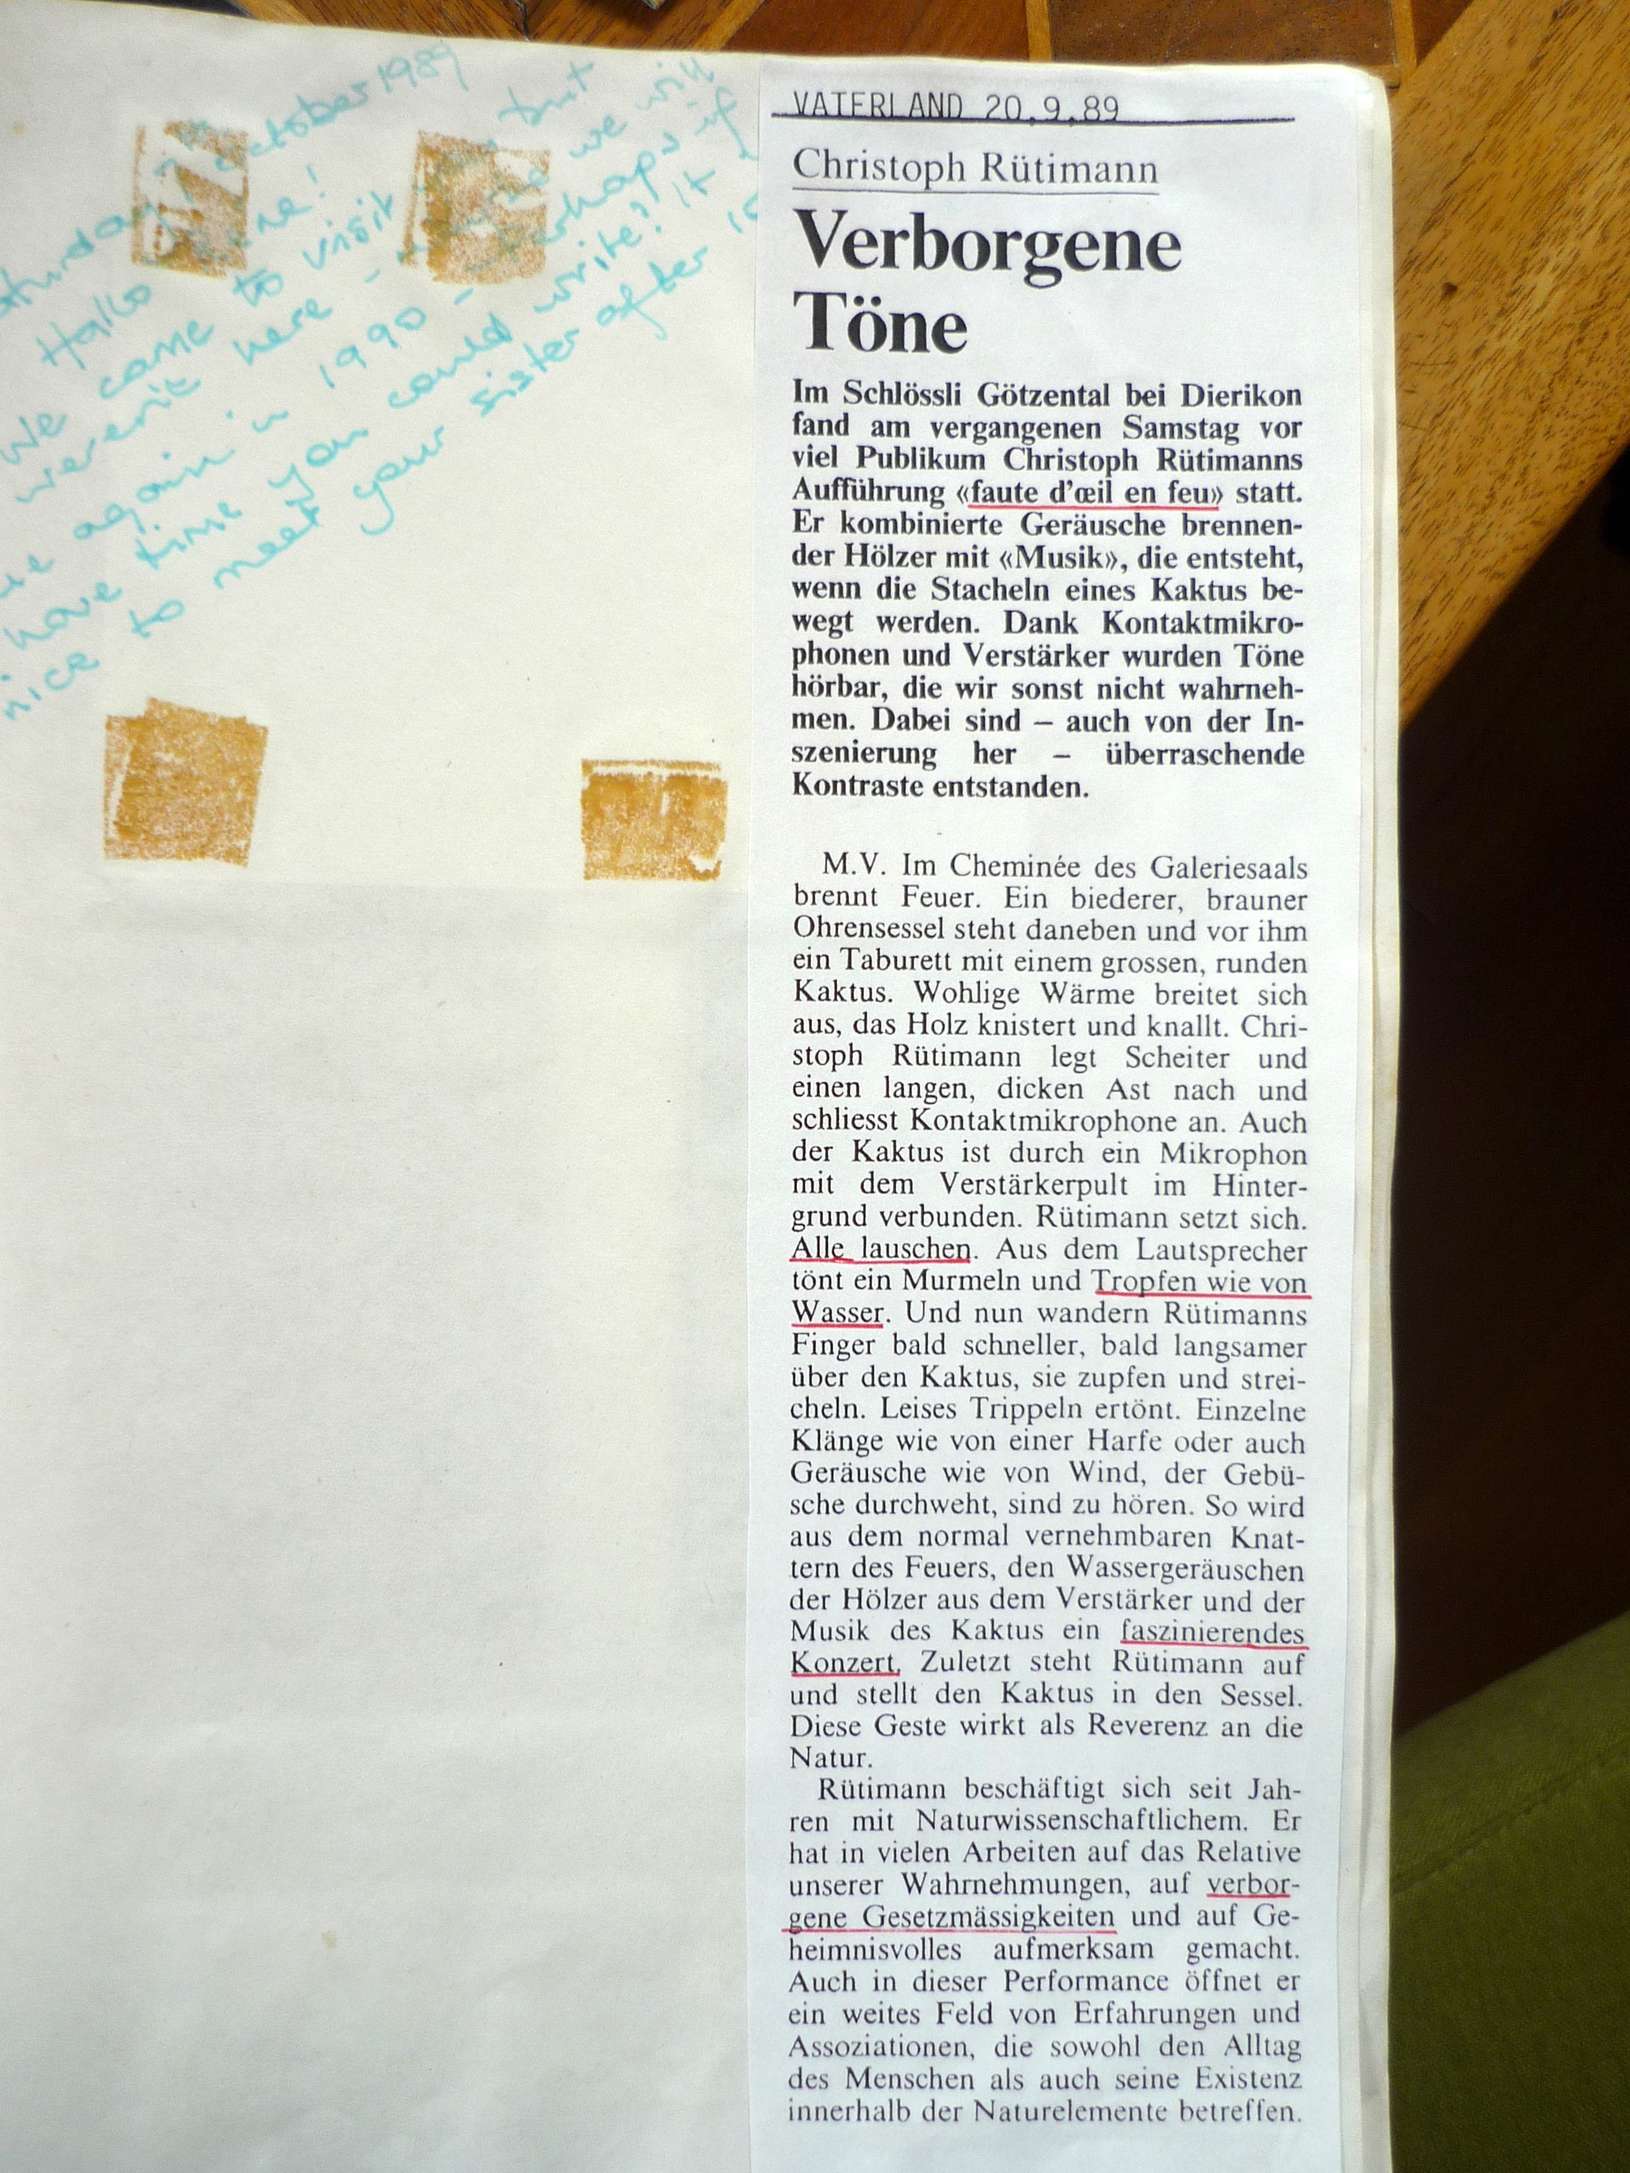 october 1989
Hallo
We came to visit but
weren't here - we will
again in 1990 - perhaps if
have time you could write? It
nice to meet your sister after
VATERLAND 20.9.89
Christoph Rütimann
Verborgene
Töne
Im Schlössli Götzental bei Dierikon
fand am vergangenen Samstag vor
viel Publikum Christoph Rütimanns
Aufführung «faute d'œil en feu» statt.
Er kombinierte Geräusche brennen-
der Hölzer mit «Musik», die entsteht,
wenn die Stacheln eines Kaktus be-
wegt werden. Dank Kontaktmikro-
phonen und Verstärker wurden Töne
hörbar, die wir sonst nicht wahrneh-
men. Dabei sind – auch von der In-
szenierung her – überraschende
Kontraste entstanden.
M.V. Im Cheminée des Galeriesaals
brennt Feuer. Ein biederer, brauner
Ohrensessel steht daneben und vor ihm
ein Taburett mit einem grossen, runden
Kaktus. Wohlige Wärme breitet sich
aus, das Holz knistert und knallt. Chri-
stoph Rütimann legt Scheiter und
einen langen, dicken Ast nach und
schliesst Kontaktmikrophone an. Auch
der Kaktus ist durch ein Mikrophon
mit dem Verstärkerpult im Hinter-
grund verbunden. Rütimann setzt sich.
Alle lauschen. Aus dem Lautsprecher
tönt ein Murmeln und Tropfen wie von
Wasser. Und nun wandern Rütimanns
Finger bald schneller, bald langsamer
über den Kaktus, sie zupfen und strei-
cheln. Leises Trippeln ertönt. Einzelne
Klänge wie von einer Harfe oder auch
Geräusche wie von Wind, der Gebü-
sche durchweht, sind zu hören. So wird
aus dem normal vernehmbaren Knat-
tern des Feuers, den Wassergeräuschen
der Hölzer aus dem Verstärker und der
Musik des Kaktus ein faszinierendes
Konzert. Zuletzt steht Rütimann auf
und stellt den Kaktus in den Sessel.
Diese Geste wirkt als Reverenz an die
Natur.
Rütimann beschäftigt sich seit Jah-
ren mit Naturwissenschaftlichem. Er
hat in vielen Arbeiten auf das Relative
unserer Wahrnehmungen, auf verbor-
gene Gesetzmässigkeiten und auf Ge-
heimnisvolles aufmerksam gemacht.
Auch in dieser Performance öffnet er
ein weites Feld von Erfahrungen und
Assoziationen, die sowohl den Alltag
des Menschen als auch seine Existenz
innerhalb der Naturelemente betreffen.